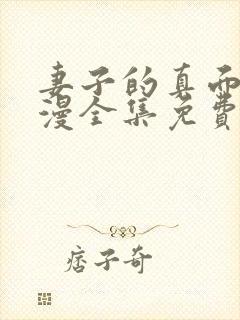 妻子的真而
漫全集免费
痞子奇